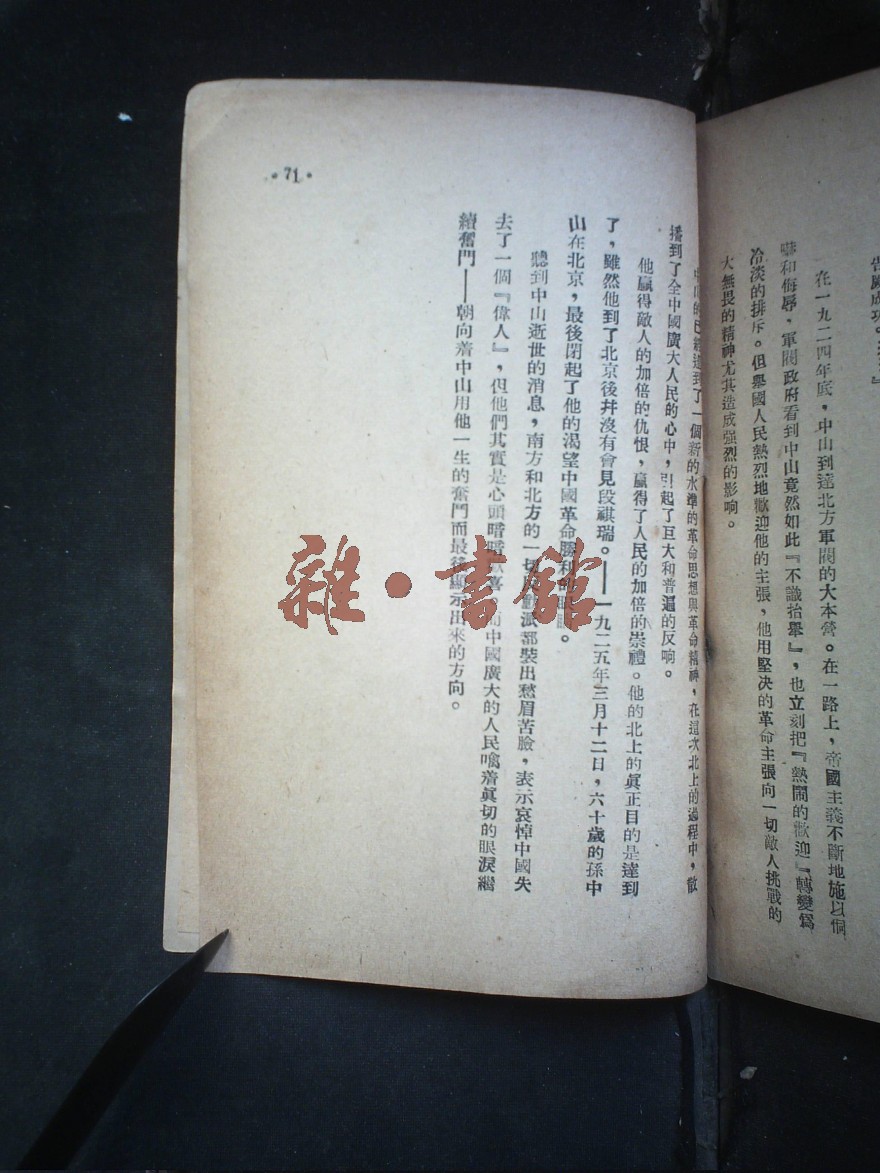 告厥成功。
在一九二四年底，中山到達北方軍閥的大本營。在一路上，帝國主義不斷地施以恫
嚇和侮辱，軍閥政府看到中山竟然如此『不識抬舉』，也立刻把『熱鬧的歡迎』轉變爲
冷淡的排斥。但舉國人民熱烈地歡迎他的主張，他用堅決的革命主張向一切敵人挑戰的
大無畏的精神尤其造成强烈的影响。
中山的已經達到了一個新的水準的革命思想與革命精神，在這次北上的過程中，散
播到了全中國廣大人民的心中，引起了巨大和普遍的反响。
他贏得敵人的加倍的仇恨，贏得了人民的加倍的崇禮。他的北上的眞正目的是達到
了，雖然他到了北京後幷沒有會見段祺瑞。——一九二五年三月十二日，六十歲的孫中
山在北京，最後閉起了他的渴望中國革命勝利的。
聽到中山逝世的消息，南方和北方的一切派都裝出愁眉苦臉，表示哀悼中國失
去了一個『偉人』，但他們其實是心頭喜。中國廣大的人民噙着眞切的眼淚繼
續奮鬥——朝向着中山用他一生的奮鬥而最後顯示出來的方向。
·71·
雜·書館